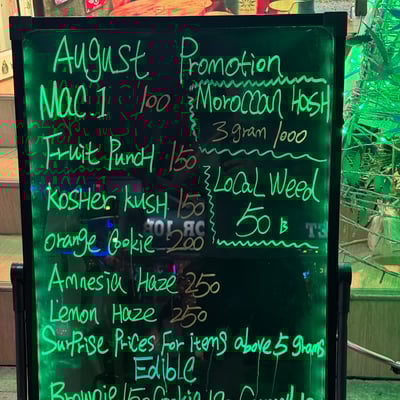 August Promotion
MAC 1 100
Moroccan Hash
3 gram 1000
Fruit Punch 150
Local Weed
Kosher kush 150
50 ฿
orange Cookie 200
Amnesia Haze 250
Lemon Haze 250
Surprise Prices For items above 5 grams
Edible
Brownie 150 Cookie